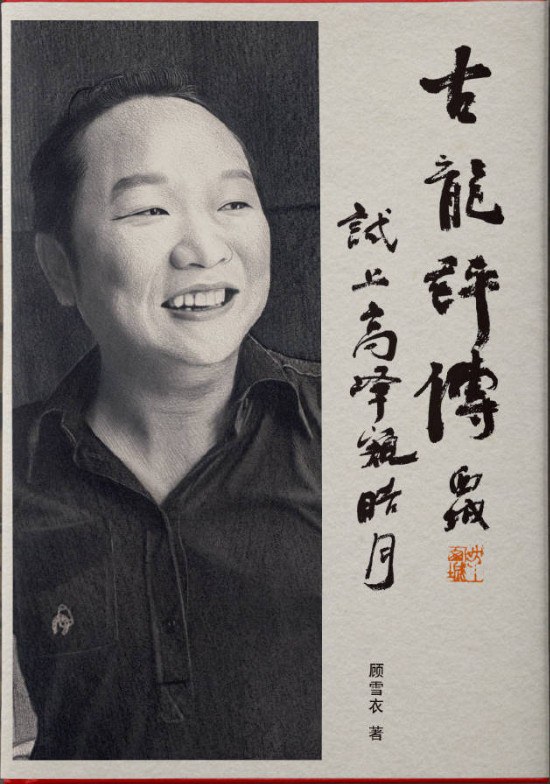 古龍評傳
西城
試上高峰窺皓月
顾雪衣 著